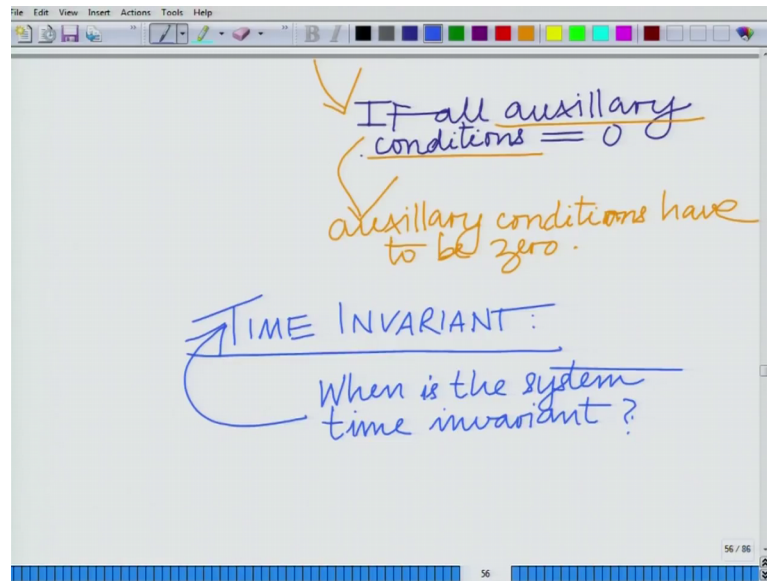 File Edit View Insert Actions Tools Help
B I
IF all auxillary
conditions = 0
auxillary conditions have
to be zero.
TIME INVARIANT:
When is the system
time invariant?
56 / 86
56